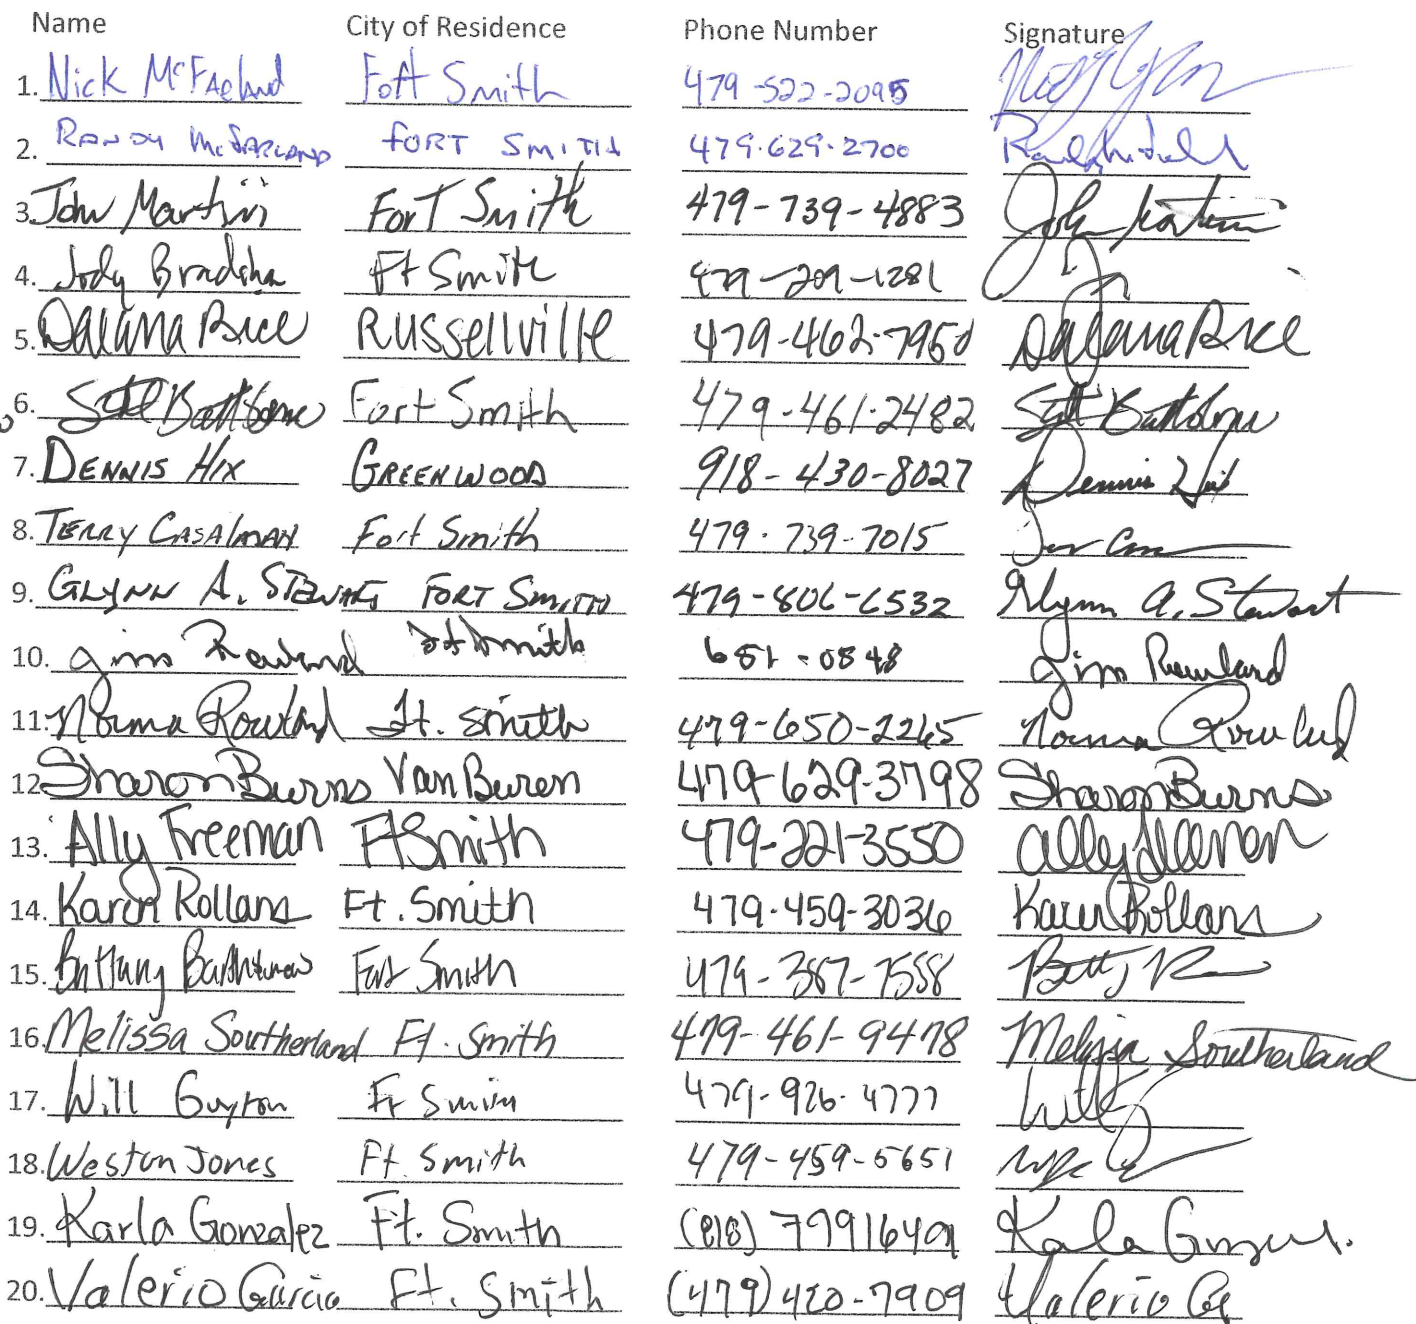 Name City of Residence Phone Number Signature
1. Nick McFarland Fort Smith 479-522-2095
2. Randy McFarland Fort Smith 479-629-2700
3. John Martini Fort Smith 479-739-4883 John Martini
4. Jody Bradshaw Ft Smith 479-209-1281
5. Dalana Rice Russellville 479-462-7950 Dalana Rice
6. Fort Smith 479-461-2482
7. Dennis Hix Greenwood 918-430-8027 Dennis Hix
8. Terry Casalman Fort Smith 479-739-7015
9. Glynn A. Stewart Fort Smith 479-806-6532 Glynn A. Stewart
10. Jim Rowland Ft Smith 651-0848 Jim Rowland
11. Norma Rowland Ft. Smith 479-650-2265 Norma Rowland
12. Sharon Burns Van Buren 479-629-3798 Sharon Burns
13. Ally Freeman Ft Smith 479-221-3550 Ally Freeman
14. Karen Rollans Ft. Smith 479-459-3036 Karen Rollans
15. Brittany Fort Smith
16. Melissa Southerland Ft. Smith 479-461-9478 Melissa Southerland
17. Will Guyton Ft Smith 479-926-4777
18. Weston Jones Ft. Smith 479-459-5651
19. Karla Gonzalez Ft. Smith Karla
20. Valerio Garcia Ft. Smith (479) 420-7909 Valerio